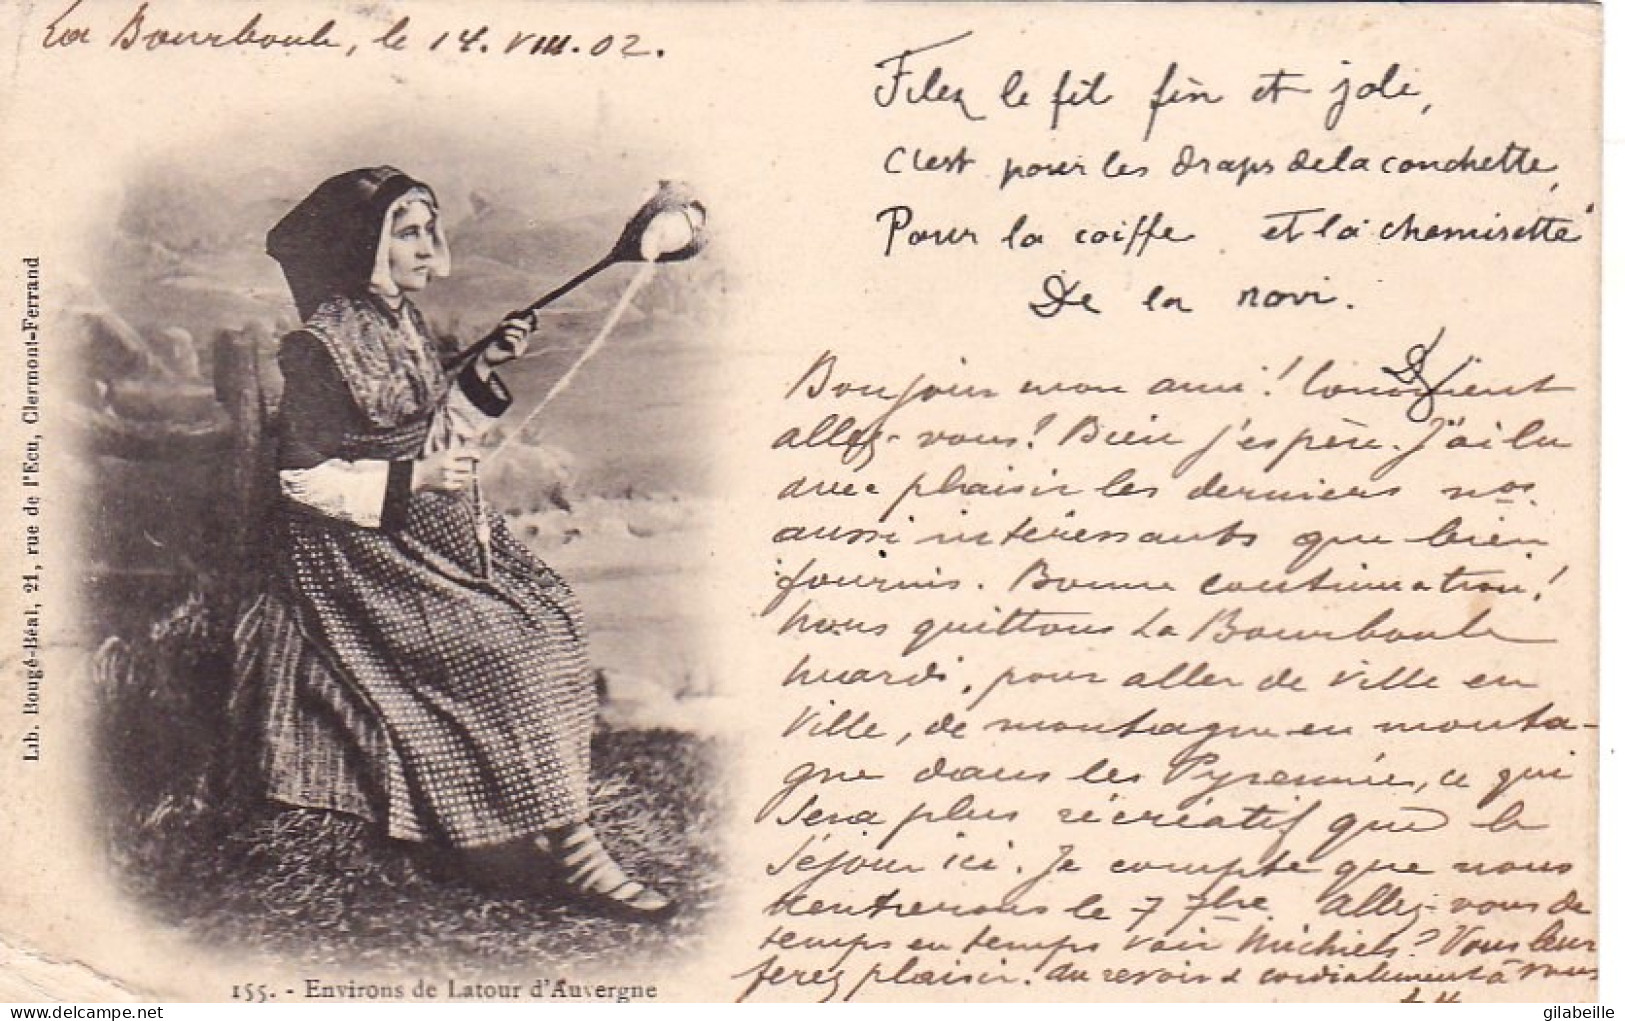 La Bourboule, le 14.VIII.02.
Filez le fil fin et joli,
C'est pour les draps de la couchette,
Pour la coiffe et la chemisette
De la novi.
Bonjour mon ami! Comment
allez-vous? Bien j'espère. J'ai lu
avec plaisir les derniers nos
aussi intéressants que bien
fournis. Bonne continuation!
Nous quittons La Bourboule
mardi, pour aller de ville en
ville, de montagne en monta-
gne dans les Pyrennées, ce qui
sera plus récréatif que le
séjour ici. Je compte que nous
rentrerons le 7 7bre. Allez-vous de
temps en temps voir Michiels? Vous leur
ferez plaisir. Au revoir & cordialement à vous
Lib. Bougé-Béal, 21, rue de l'Ecu, Clermont-Ferrand
155. - Environs de Latour d'Auvergne
gilabeille